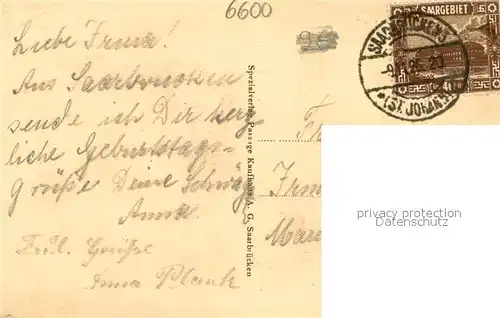 6600
Liebe Irma!
Aus Saarbrücken
sende ich Dir herz-
liche Geburtstags-
grüße Deine
Anna.
Frdl. Grüße
Anna Plank
Spezialverlag Passage Kaufhaus A. G. Saarbrücken
SAARGEBIET
SAARBRÜCKEN
(ST. JOHANN
40
Irm
privacy protection
Datenschutz